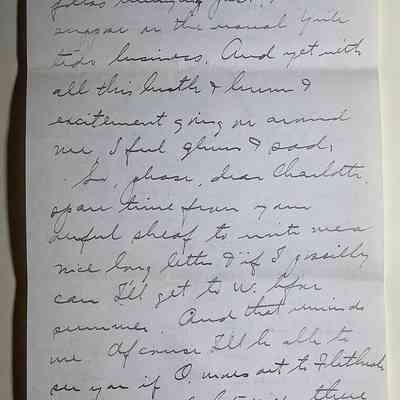 snappe or the usual Yule
tide business. And yet with
all this bustle & hum &
excitement going on around
me, I feel glum & sad.
So, please, dear Charlotte,
spare time from your
awful sheaf to write me a
nice long letter & if I possibly
can I'll get to W. before
summer. And that reminds
me. Of course I'll be able to
see you if O. moves out to Flatbush
there